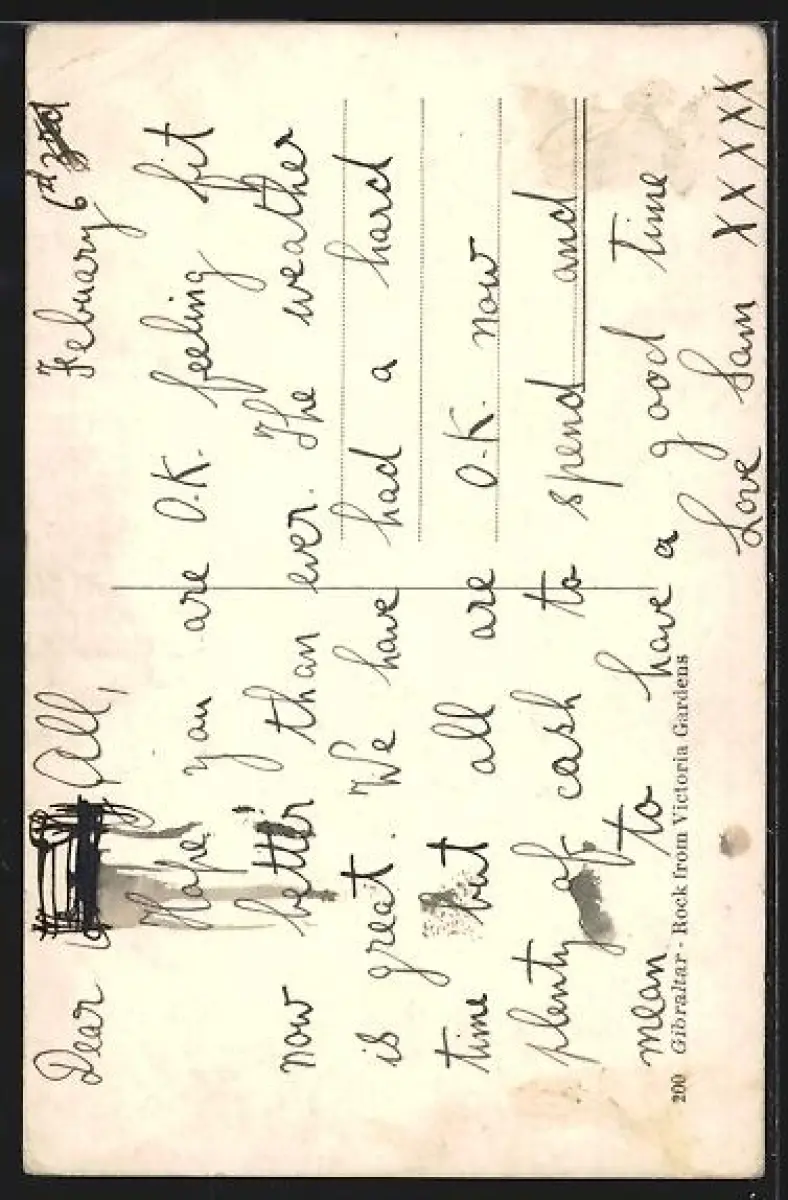 Febuary 6th
Dear All,
Hope you are O.K. feeling fit
now better than ever. The weather
is great. We have had a hard
time but all are O.K. now
plenty of cash to spend and
mean to have a good time
Love Sam XXXXX
200 Gibraltar - Rock from Victoria Gardens